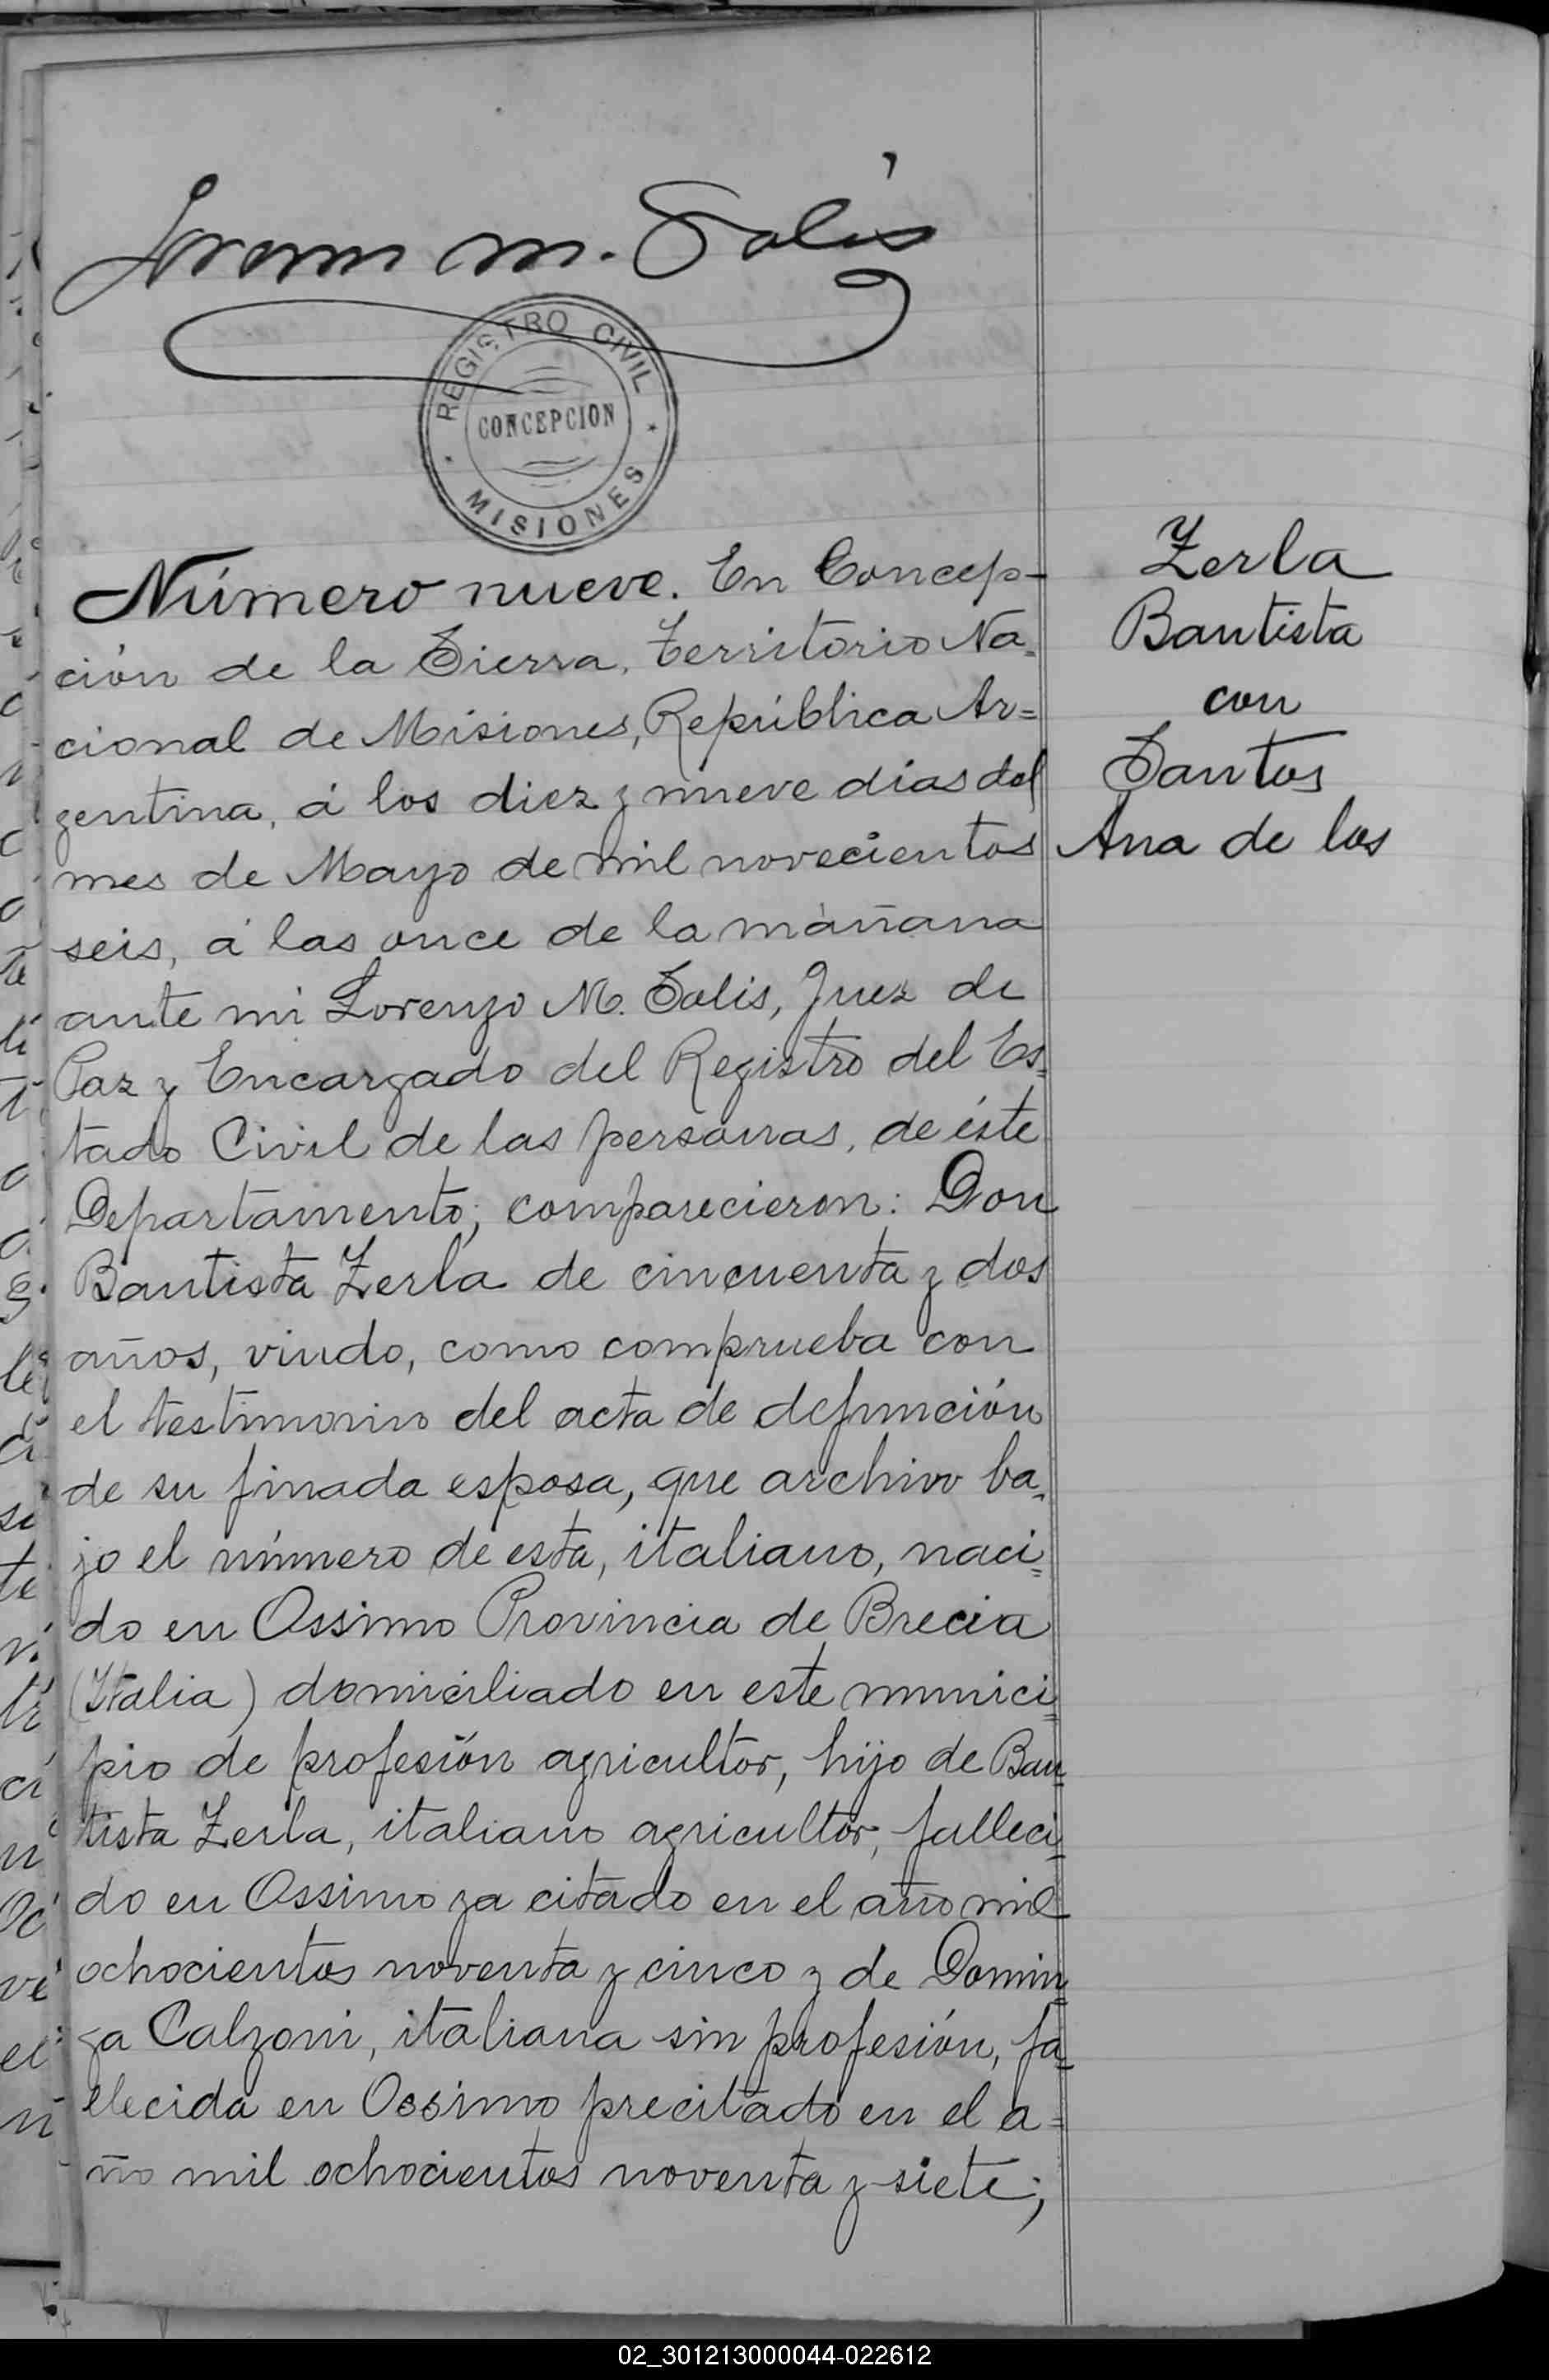 Lorenzo M. Salis
REGISTRO CIVIL
CONCEPCION
MISIONES
Número nueve. En Concep-
ción de la Sierra, Territorio Na=
cional de Misiones, República Ar=
gentina, á los diez y nueve dias del
mes de Mayo de mil novecientos
seis, á las once de la mañana
ante mi Lorenzo M. Salis, Juez de
Paz y Encargado del Registro del Es=
tado Civil de las personas, de éste
Departamento; comparecieron: Don
Bautista Zerla de cincuenta y dos
años, viudo, como comprueba con
el testimonio del acta de defunción
de su finada esposa, que archivo ba=
jo el número de esta, italiano, naci=
do en Ossimo Provincia de Brecia
(Italia) domiciliado en este munici=
pio de profesión agricultor, hijo de Bau=
tista Zerla, italiano agricultor, falleci=
do en Ossimo ya citado en el año mil
ochocientos noventa y cinco y de Domin=
ga Calzoni, italiana sin profesión, fa=
llecida en Ossimo precitado en el a=
ño mil ochocientos noventa y siete;
Zerla
Bautista
con
Santos
Ana de los
02_301213000044-022612